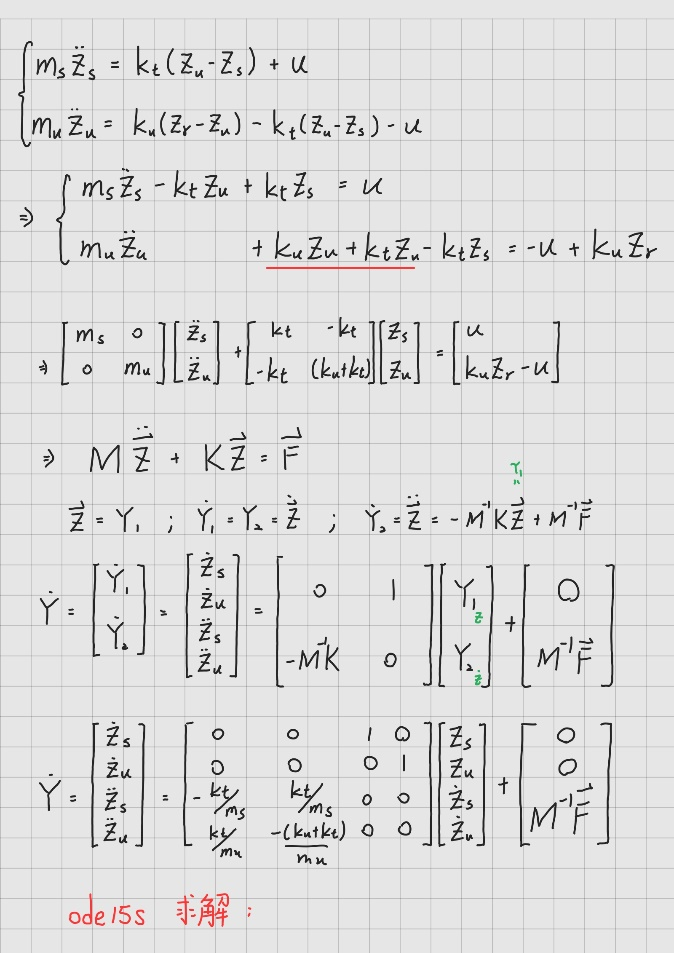 m_s z̈_s = k_t(z_u - z_s) + u
m_u z̈_u = k_u(z_r - z_u) - k_t(z_u - z_s) - u
⇒ { m_s z̈_s - k_t z_u + k_t z_s = u
m_u z̈_u + k_u z_u + k_t z_u - k_t z_s = -u + k_u z_r
⇒ [m_s 0; 0 m_u] [z̈_s; z̈_u] + [k_t -k_t; -k_t (k_u+k_t)] [z_s; z_u] = [u; k_u z_r - u]
⇒ M z⃗̈ + K z⃗ = F⃗
Y_1
z⃗ = Y_1 ; Ẏ_1 = Y_2 = z⃗̇ ; Ẏ_2 = z⃗̈ = -M⁻¹K z⃗ + M⁻¹F⃗
Ẏ = [Ẏ_1; Ẏ_2] = [ż_s; ż_u; z̈_s; z̈_u] = [0 1; -M⁻¹K 0] [Y_1 z; Y_2 ż] + [0; M⁻¹F⃗]
Ẏ = [ż_s; ż_u; z̈_s; z̈_u] = [0 0 1 0; 0 0 0 1; -k_t/m_s k_t/m_s 0 0; k_t/m_u -(k_u+k_t)/m_u 0 0] [z_s; z_u; ż_s; ż_u] + [0; 0; M⁻¹F⃗]
ode15s 求解：